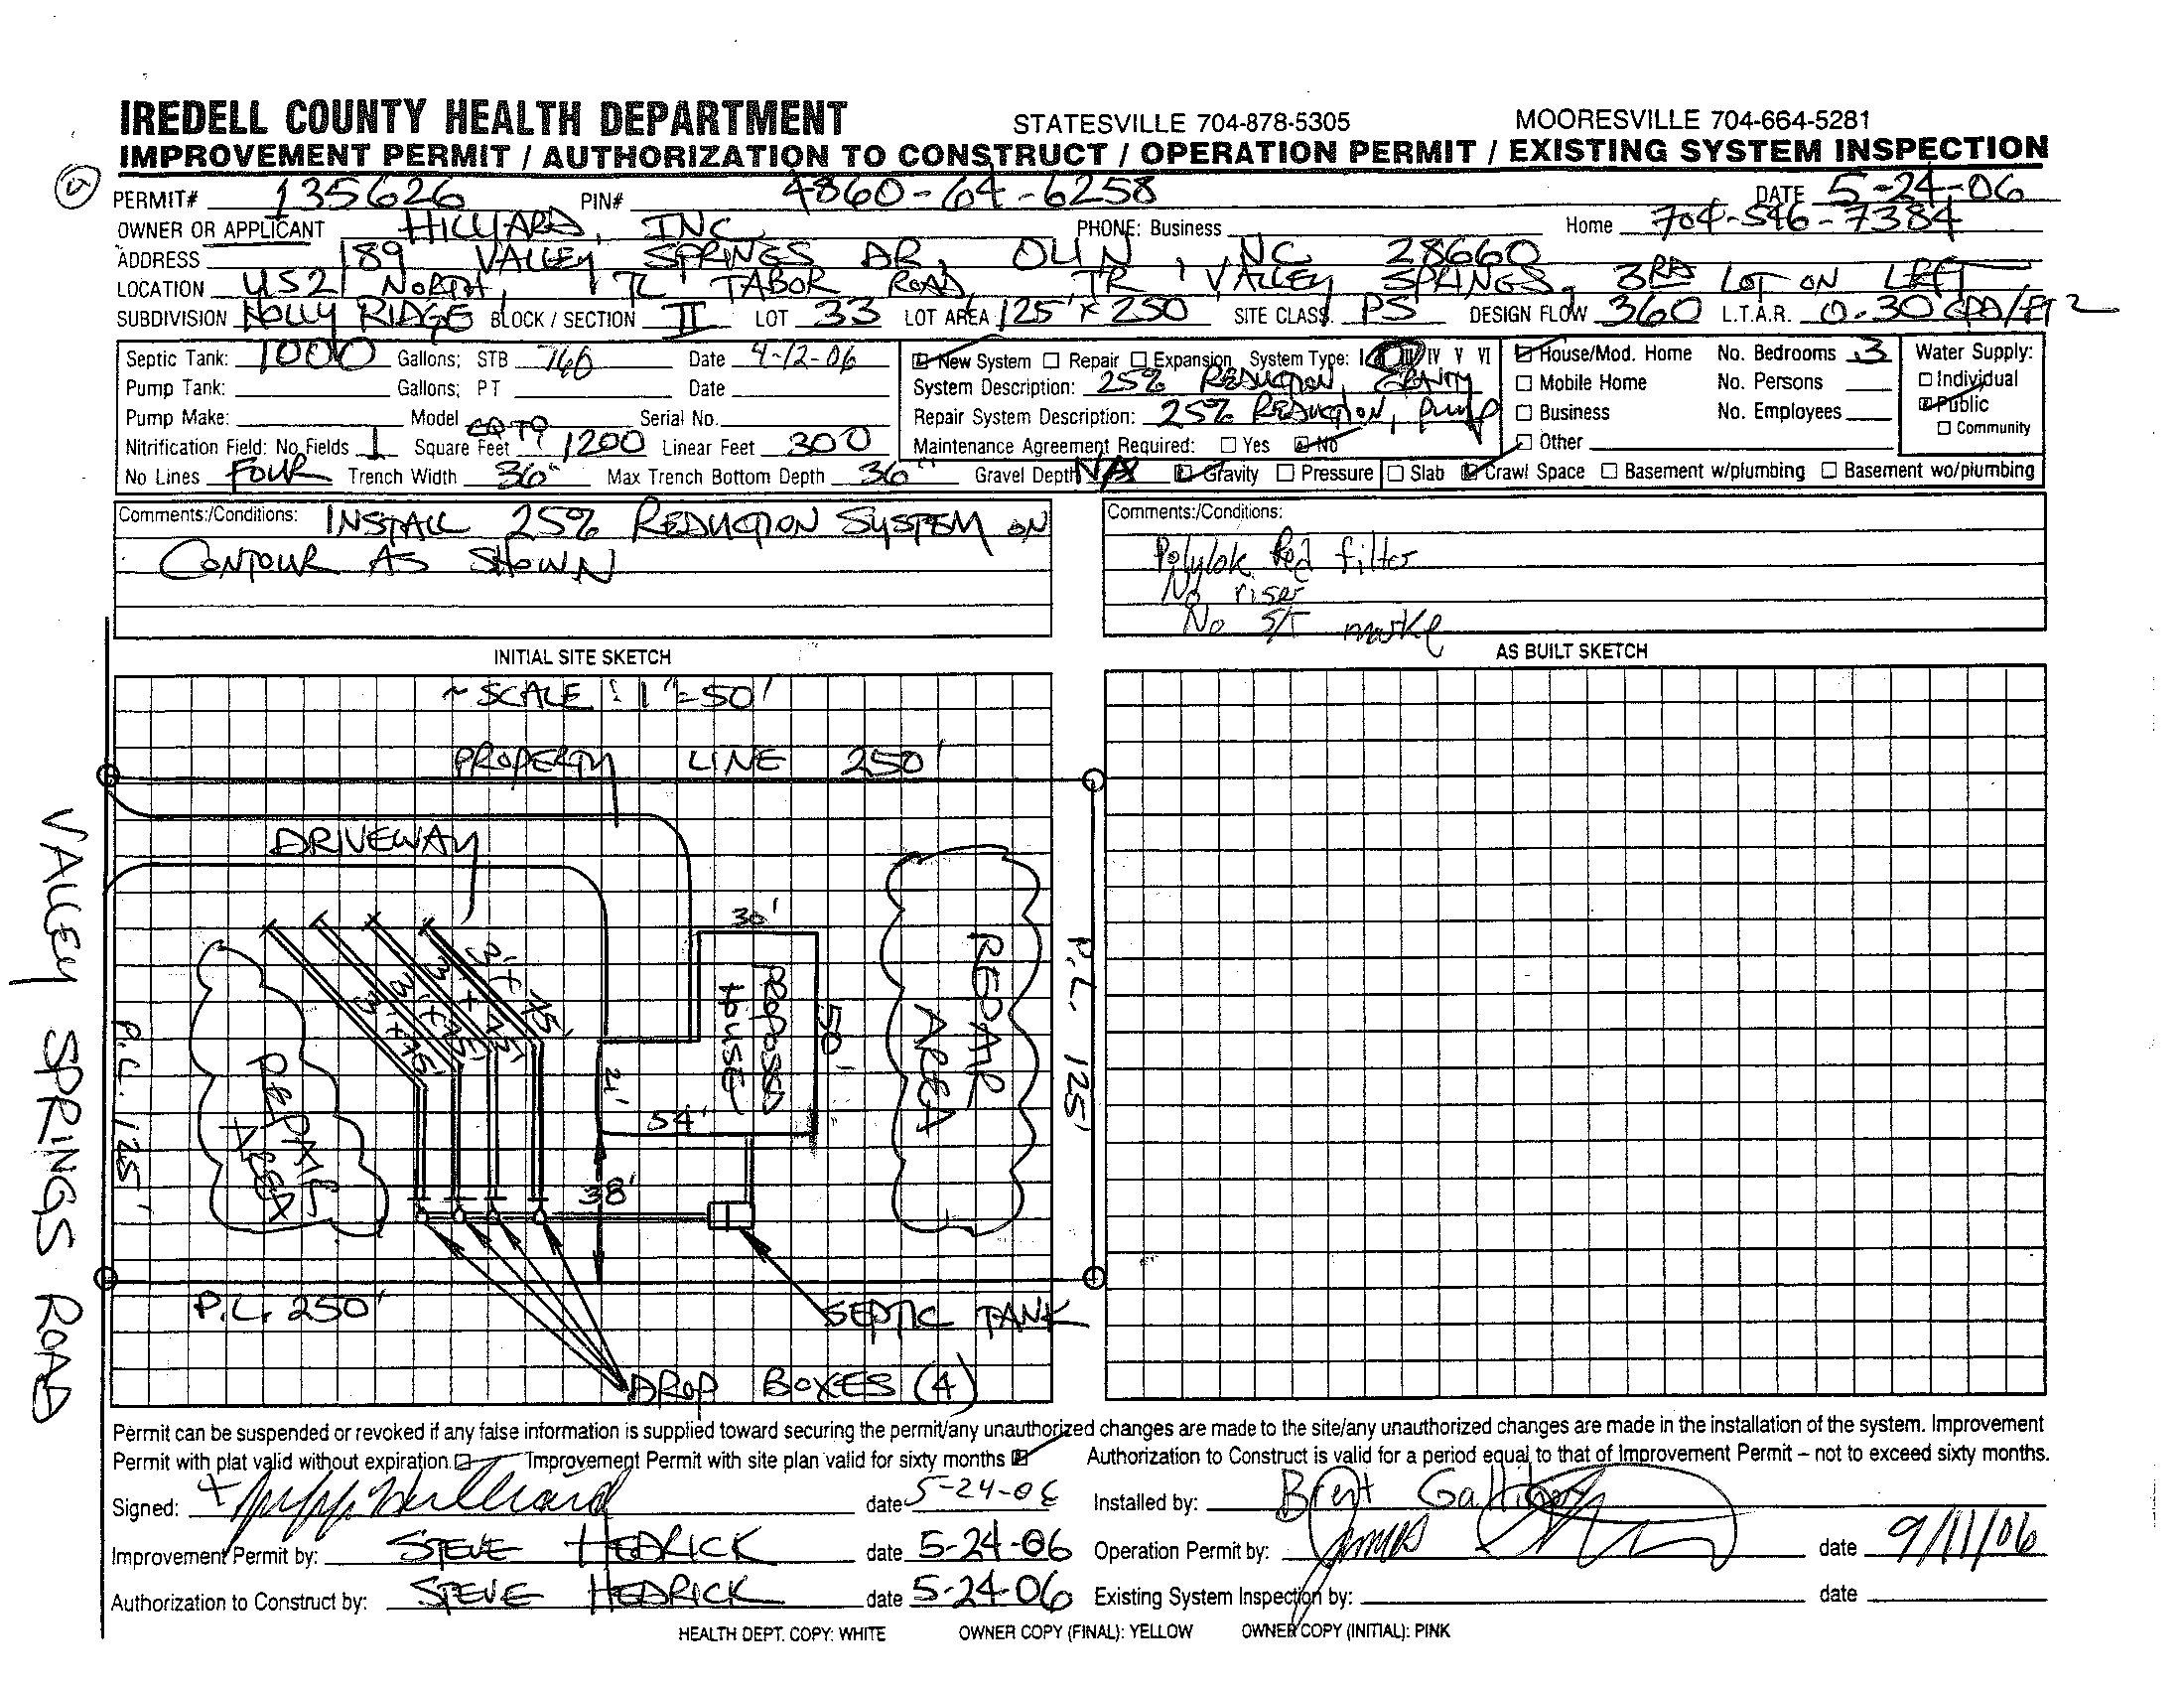 IREDELL COUNTY HEALTH DEPARTMENT STATESVILLE 704-878-5305 MOORESVILLE 704-664-5281
IMPROVEMENT PERMIT / AUTHORIZATION TO CONSTRUCT / OPERATION PERMIT / EXISTING SYSTEM INSPECTION
PERMIT# 135626 PIN# 4860-64-6258 DATE 5-24-06
OWNER OR APPLICANT HILLIARD, INC PHONE: Business Home 704-546-7384
ADDRESS 189 VALLEY SPRINGS DR, OLIN, NC 28660
LOCATION US 21 NORTH, TL TABOR ROAD, TR, VALLEY SPRINGS, 3RD LOT ON LEFT
SUBDIVISION HOLLY RIDGE BLOCK / SECTION II LOT 33 LOT AREA 125' x 250 SITE CLASS. PS DESIGN FLOW 360 L.T.A.R. 0.30 GPD/FT2
Septic Tank: 1000 Gallons; STB 760 Date 4-12-06
Pump Tank: Gallons; PT Date
Pump Make: Model Serial No.
Nitrification Field: No. Fields 1 Square Feet 1200 Linear Feet 300
No Lines FOUR Trench Width 36" Max Trench Bottom Depth 36" Gravel Depth N/A Gravity Pressure
New System Repair Expansion System Type: I II III IV V VI
System Description: 25% REDUCTION, GRAVITY
Repair System Description: 25% REDUCTION, PUMP
Maintenance Agreement Required: Yes No
House/Mod. Home No. Bedrooms 3
Mobile Home No. Persons
Business No. Employees
Other
Slab Crawl Space Basement w/plumbing Basement wo/plumbing
Water Supply:
Individual
Public
Community
Comments:/Conditions: INSTALL 25% REDUCTION SYSTEM ON
CONTOUR AS SHOWN
Comments:/Conditions:
Polylok Red filter
No riser
No S/T marke
INITIAL SITE SKETCH
AS BUILT SKETCH
~ SCALE : 1"=50'
PROPERTY LINE 250'
DRIVEWAY
VALLEY SPRINGS ROAD
P.L. 125'
3' x 75'
3' x 75'
3' x 75'
3' x 75'
REPAIR AREA
30'
PROPOSED HOUSE
50'
21'
54'
38'
REPAIR AREA
P.L. 125'
P.L. 250'
SEPTIC TANK
DROP BOXES (4)
Permit can be suspended or revoked if any false information is supplied toward securing the permit/any unauthorized changes are made to the site/any unauthorized changes are made in the installation of the system. Improvement
Permit with plat valid without expiration. Improvement Permit with site plan valid for sixty months Authorization to Construct is valid for a period equal to that of Improvement Permit – not to exceed sixty months.
Signed: date 5-24-06 Installed by: Brent
Improvement Permit by: STEVE HEDRICK date 5-24-06 Operation Permit by: James date 9/11/06
Authorization to Construct by: STEVE HEDRICK date 5-24-06 Existing System Inspection by: date
HEALTH DEPT. COPY: WHITE OWNER COPY (FINAL): YELLOW OWNER COPY (INITIAL): PINK